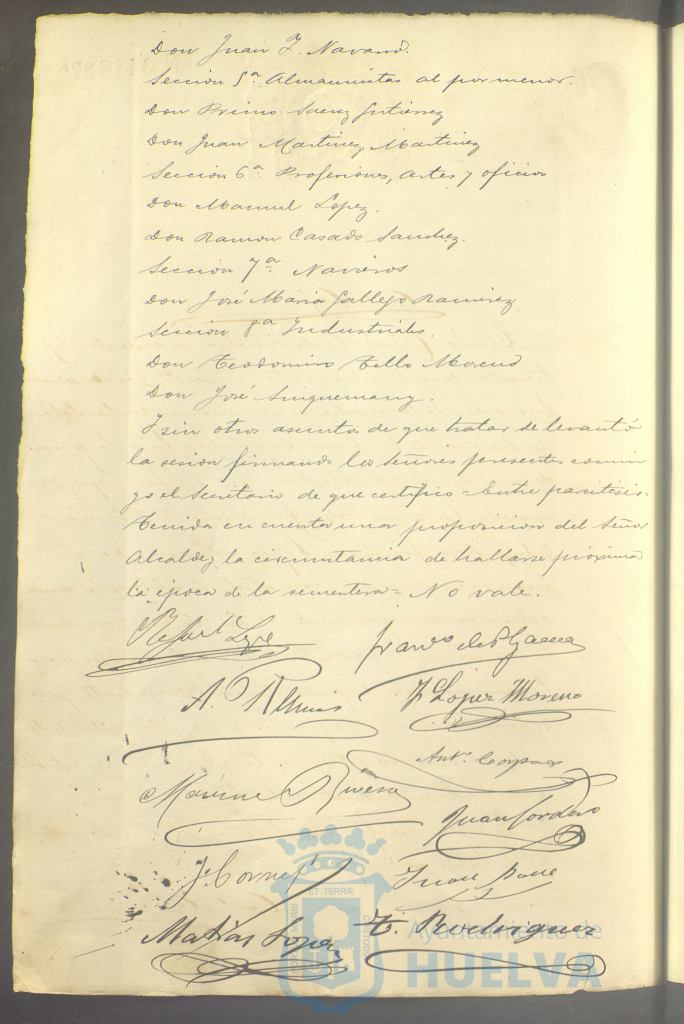 Don Juan F. Navarro.
Sección 5ª Almacenistas al por menor.
Don Primo Saenz Gutierrez
Don Juan Martinez Martinez
Sección 6ª Profesiones, artes y oficios
Don Manuel Lopez.
Don Ramon Casado Sanchez.
Sección 7ª Navieros
Don José Maria Gallego Ramirez
Sección 8ª Industriales.
Don Teodomiro Tello Moreno
Don José
Y sin otros asuntos de que tratar se levantó
la sesion firmando los Señores presentes conmi
go el Secretario de que certifico = Entre parentesis =
tenida en cuenta una proposicion del Señor
Alcalde y la circunstancia de hallarse próxima
la época de la sementera = No vale.
Rafael
Franco de P.
A.
F Lopez Moreno
Antº
Rivera
Juan Cordero
J.
Juan
Matias Lopez
T. Rodriguez
Ayuntamiento de
HUELVA